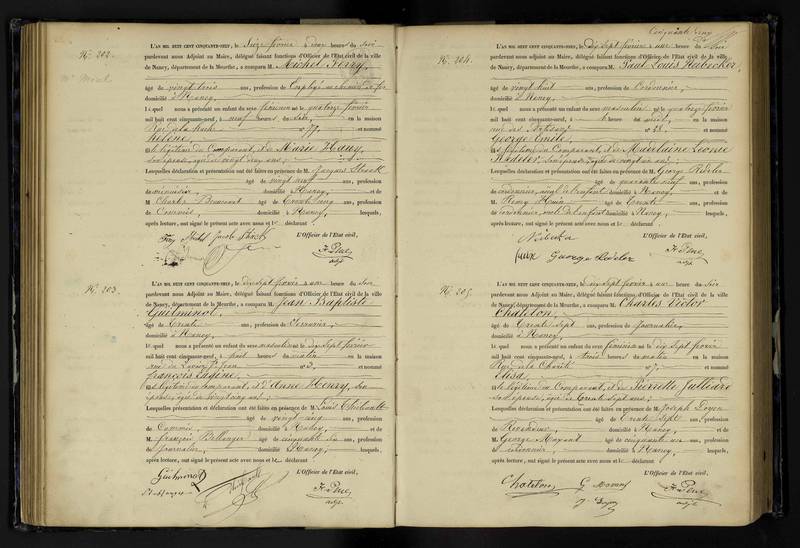 Cinquante cinq
N° 202.
L'AN MIL HUIT CENT CINQUANTE-NEUF, le Seize février à onze heures du soir
pardevant nous Adjoint au Maire, délégué faisant fonctions d'Officier de l'Etat civil de la ville
de Nancy, département de la Meurthe, a comparu M. Michel Ferry,
âgé de vingt trois ans, profession de Employé au chemin de fer
domicilié à Nancy,
lequel nous a présenté un enfant du sexe féminin né le quatorze février
mil huit cent cinquante-neuf, à neuf heures du soir, en la maison
Rue n° 77, et nommé
Hélène,
fille légitime du Comparant, & de Marie Hauy,
son épouse, âgée de vingt deux ans;
Lesquelles déclaration et présentation ont été faites en présence de M. Jacques
âgé de vingt neuf ans, profession
de menuisier, domicilié à Nancy, et de
M. Charles âgé de trente cinq ans, profession
de Commis, domicilié à Nancy, lesquels,
après lecture, ont signé le présent acte avec nous et le déclarant
L'Officier de l'Etat civil,
Ferry Michel Jacob
adjt
N° 203.
L'AN MIL HUIT CENT CINQUANTE-NEUF, le dix sept février à une heure du soir
pardevant nous Adjoint au Maire, délégué faisant fonctions d'Officier de l'Etat civil de la ville
de Nancy, département de la Meurthe, a comparu M. Jean Baptiste
Guilminot,
âgé de trente ans, profession de Serrurier,
domicilié à Nancy,
lequel nous a présenté un enfant du sexe masculin né le dix sept février
mil huit cent cinquante-neuf, à huit heures du matin en la maison
rue du St Jean n° 3, et nommé
François Eugène,
fils légitime du comparant, et d'Anne Henry, son
épouse, âgée de vingt cinq ans;
Lesquelles déclaration et présentation ont été faites en présence de M. Louis Thiébault
âgé de vingt cinq ans, profession
de Commis, domicilié à Nancy, et de
M. François Bellanger âgé de cinquante six ans, profession
de journalier, domicilié à Nancy, lesquels,
après lecture, ont signé le présent acte avec nous et le déclarant
L'Officier de l'Etat civil,
Guilminot
adjt
N° 204.
L'AN MIL HUIT CENT CINQUANTE-NEUF, le dix sept février à une heure du soir
pardevant nous Adjoint au Maire, délégué faisant fonctions d'Officier de l'Etat civil de la ville
de Nancy, département de la Meurthe, a comparu M. Paul Louis
âgé de vingt huit ans, profession de Cordonnier,
domicilié à Nancy,
lequel nous a présenté un enfant du sexe masculin né le quatorze février
mil huit cent cinquante-neuf, à heures du midi, en la maison
rue des Artisans n° 33, et nommé
George Emile,
fils légitime du Comparant, & de Madelaine Léonie
son épouse, âgée de vingt un ans;
Lesquelles déclaration et présentation ont été faites en présence de M. George
âgé de quarante neuf ans, profession
de cordonnier, ayeul de l'enfant domicilié à Nancy, et de
M. Remy âgé de trente ans, profession
de cordonnier, de l'enfant domicilié à Nancy, lesquels,
après lecture, ont signé le présent acte avec nous et le déclarant
L'Officier de l'Etat civil,
George
adjt
N° 205.
L'AN MIL HUIT CENT CINQUANTE-NEUF, le dix sept février à une heure du soir
pardevant nous Adjoint au Maire, délégué faisant fonctions d'Officier de l'Etat civil de la ville
de Nancy, département de la Meurthe, a comparu M. Charles Victor
Chatelon,
âgé de trente sept ans, profession de journalier,
domicilié à Nancy,
lequel nous a présenté un enfant du sexe féminin né le dix sept février
mil huit cent cinquante-neuf, à trois heures du matin en la maison
Rue de la Charité n° 7, et nommé
Elisa,
fille légitime du Comparant, & de Pierrette Julliard
son épouse, âgée de trente sept ans;
Lesquelles déclaration et présentation ont été faites en présence de M. Joseph Doyen
âgé de trente sept ans, profession
de Revendeur, domicilié à Nancy, et de
M. George âgé de cinquante six ans, profession
de cordonnier, domicilié à Nancy, lesquels,
après lecture, ont signé le présent acte avec nous et le déclarant
L'Officier de l'Etat civil,
Chatelon G
J Doyen
adjt